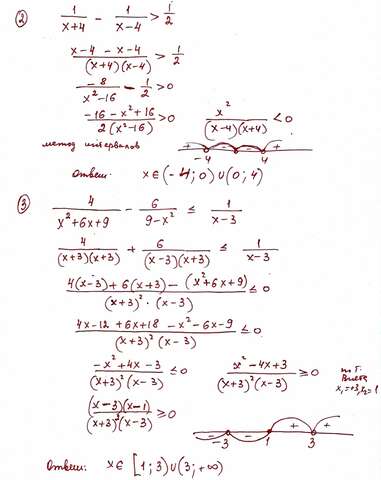 ②
1/(x+4) - 1/(x-4) > 1/2
(x-4-x-4)/((x+4)(x-4)) > 1/2
-8/(x²-16) - 1/2 > 0
(-16-x²+16)/(2(x²-16)) > 0    x²/((x-4)(x+4)) < 0
метод интервалов
+ - - +
-4 4
Ответ: x ∈ (-4; 0) ∪ (0; 4)
③
4/(x²+6x+9) - 6/(9-x²) ≤ 1/(x-3)
4/((x+3)(x+3)) + 6/((x-3)(x+3)) ≤ 1/(x-3)
(4(x-3)+6(x+3)-(x²+6x+9))/((x+3)²·(x-3)) ≤ 0
(4x-12+6x+18-x²-6x-9)/((x+3)²(x-3)) ≤ 0
(-x²+4x-3)/((x+3)²(x-3)) ≤ 0    (x²-4x+3)/((x+3)²(x-3)) ≥ 0    по т. Виета x₁=+3, x₂=1
((x-3)(x-1))/((x+3)²(x-3)) ≥ 0
- - + +
-3 1 3
Ответ: x ∈ [1; 3) ∪ (3; +∞)